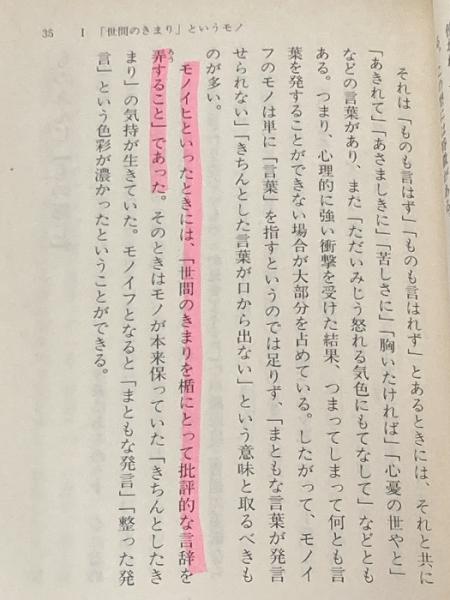 35 Ⅰ 「世間のきまり」というモノ
それは「ものも言はず」「ものも言はれず」とあるときには、それと共に
「あきれて」「あさましきに」「苦しさに」「胸いたければ」「心憂の世やと」
などの言葉があり、また「ただいみじう怒れる気色にもてなして」などとも
ある。つまり、心理的に強い衝撃を受けた結果、つまってしまって何とも言
葉を発することができない場合が大部分を占めている。したがって、モノイ
フのモノは単に「言葉」を指すというのでは足りず、「まともな言葉が発言
せられない」「きちんとした言葉が口から出ない」という意味と取るべきも
のが多い。
モノイヒといったときには、「世間のきまりを楯にとって批評的な言辞を
弄すること」であった。そのときはモノが本来保っていた「きちんとしたき
まり」の気持が生きていた。モノイフとなると「まともな発言」「整った発
言」という色彩が濃かったということができる。